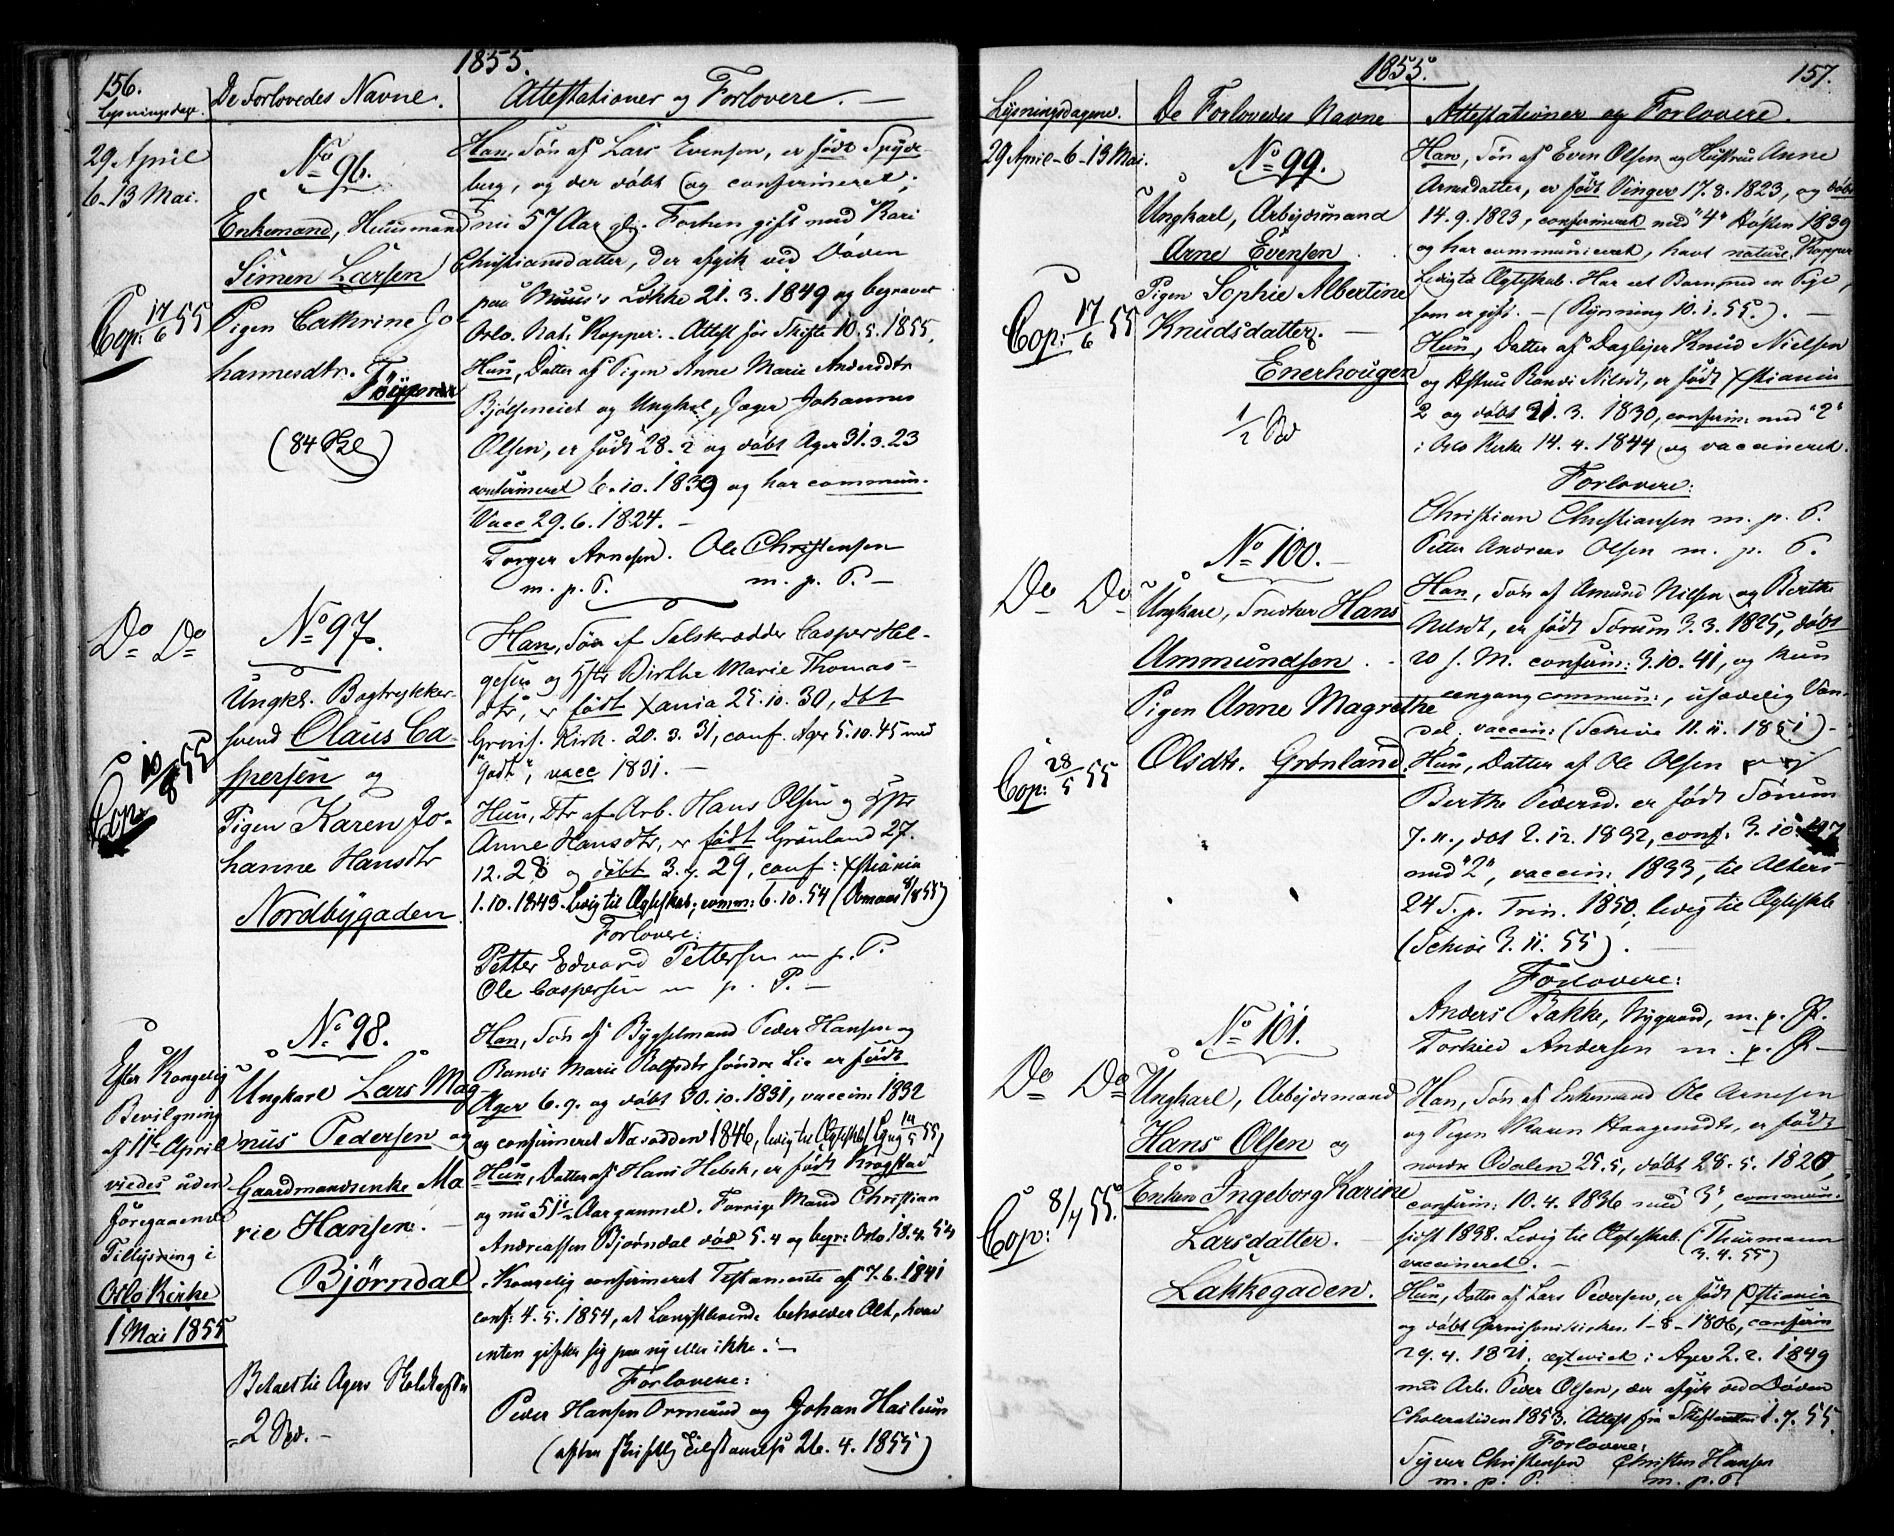 156.
1855.
Lysningsdage.
De Forlovedes Navne.
Attestationer og Forlovere. —
29. April
6. 13 Mai.
No 96.
Enkemand, Huusmand
Simen Larsen
Pigen Cathrine Jo-
hannesdtr.
(84 Sk)
Cop: 17/6 55
Han, Søn af Lars Evensen, er født Spyde-
berg, og der døbt og confirmeret;
nu 57 Aar gl. Forhen gift med Kari
Christiansdatter, der afgik ved Døden
paa Muus's Løkke 21. 3. 1849 og begravet
Oslo. Nat: Kopper. Attest før Skifte 10. 5. 1855.
Hun, Datter af Pigen Anne Marie Andersdtr
Bjølseneiet og Ungkl, Jæger Johannes
Olsen, er født 28. 2 og døbt Ager 31. 3. 23
confirmeret 6. 10. 1839 og har commun.
Vacc 29. 6. 1824. —
Torger Arnesen. Ole Christensen
m. p. P. m. p. P. —
Do Do
No 97.
Ungkl. Bogtrykker-
svend Olaus Ca-
spersen og
Pigen Karen Jo-
hanne Hansdtr
Nordbygaden.
Cop: 10/8 55
Han, Søn af Selskrædder Casper Hel-
gesen og Hstr Birthe Marie Thomas-
dtr, er født Xania 25. 10. 30, dbt
Grnis. Kirk. 20. 3. 31, conf. Ager 5. 10. 45 med
"Godt", vacc 1831. —
Hun, Dtr af Arb. Hans Olsen og Hstr
Anne Hansdtr, er født Grønland 27.
12. 28 og døbt 3. 9. 29, conf: Xstiania
1. 10. 1843. ledig til Ægteskab; comm: 6. 10. 54
Forlovere:
Petter Edvard Pettersen m p. P.
Ole Caspersen m p. P. —
No 98.
Efter Kongelig
Bevilgning
af 11te April
viedes uden
foregaaende
Tillysning i
Oslo Kirke
1 Mai 1855
Ungkarl Lars Mag-
nus Pedersen og
Gaardmandsenke Ma
rie Hansen. —
Bjørndal
Betalt til Agers
2 Spd. —
Han, Søn af Bygselmand Peder Hansen og
Randi Marie Rolfsdtr søndre Lie er født
Ager 6. 9. og døbt 30. 10. 1831, vaccin: 1832
og confirmeret Næsodden 1846, ledig til Ægteskab
Hun, Datter af Hans Hebek, er født Kragstad
og nu 51 Aar gammel. Forrige Mand Christian
Andreassen Bjørndal død 5. 4 og begr: Oslo. 18. 4. 54
Kongelig confirmeret Testamente af 7. 6. 1841
conf: 4. 5. 1854, at Længstlevende beholder Alt, hvad
enten gifter sig paa ny eller ikke. —
Forlovere:
Peder Hansen Ormerud og Johan Haslum
(efter skriftlig Tilstaaelse 26. 4. 1855)
1855.
157.
Lysningsdagene.
De Forlovedes Navne
Attestationer og Forlovere.
29 April - 6 - 13 Mai.
No 99.
Ungkarl, Arbeidsmand
Arne Evensen
Pigen Sophie Albertine
Knudsdatter. —
Enerhougen
1/2 Spd
Cop: 17/6 55
Han, Søn af Even Olsen og Hustru Anne
Arnesdatter, er født Vinger 17. 8. 1823, og døbt
14. 9. 1823, confirmeret med "4" Høsten 1839
og har communiceret, havt naturl. Kopper
Ledigta Ægteskab. Har eet Barn med en Pige,
som er gift. — (Rynning 10. 1. 55.). —
Hun, Datter af Daglejer Knud Nielsen
og Hstru Randi Nilsdt, er født Xstiania
2 og døbt 21. 3. 1830, confirm: med "2"
i Oslo Kirke 14. 4. 1844 og vaccineret.
Forlovere:
Christian Christiansen m. p. P.
Petter Andreas Olsen m. p. P.
Do Do
No 100.
Ungkarl, Snedker Hans
Ammundsen
Pigen Anne Magrethe
Olsdtr. Grønland.
Cop: 28/5 55
Han, Søn af Amund Nilsen og Berthe
Nilsdt, er født Sørum 3. 3. 1825, døbt
20 s. M. confirm: 3. 10. 41, og kun
eengang commun:, usædelig Van-
del, vaccin: (Schive 11. 11. 1851). —
Hun, Datter af Ole Olsen og
Berthe Pedersd. er født Sørum
7. 11., døbt 2. 12. 1832, conf. 3. 10. 47
med "2", vaccin: 1833, til Alters
24 S. p. Trin. 1850, ledig til Ægteskab
(Schive 3. 11. 55). —
Forlovere:
Anders Bakke, Nygaard, m. p. P.
Torkild Andersen m. p. P. —
Do Do
No 101.
Ungkarl, Arbejdsmand
Hans Olsen og
Enken Ingeborg Karine
Larsdatter. —
Lakkegaden.
Cop: 8/7 55.
Han, Søn af Enkemand Ole Arnesen
og Pigen Maren Haagensdtr, er født
nordre Odalen 25. 5, døbt 28. 5. 1820,
confirm: 10. 4. 1836 med "3", commun:
sidst 1838. Ledig til Ægteskab. (Thurmann
3. 4. 55)
vaccineret. —
Hun, Datter af Lars Pedersen, er født Xstiania
og døbt Garnisonskirken 1 - 8 - 1806, confirm
29. 4. 1821. ægteviet i Ager 2. 2. 1849
med Arb. Peder Olsen, der afgik ved Døden
Choleratiden 1853. Attest fra Skifteretten 1. 7. 55.
Forlovere:
Syver Christensen Christen Hansen
m. p. P. m. p. P.